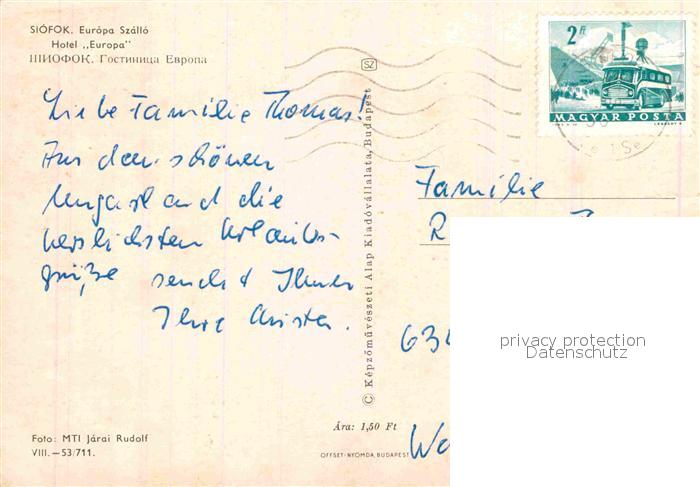 SIÓFOK. Európa Szálló
Hotel „Europa"
ШИОФОК. Гостиница Европа
SZ
2 Ft
MAGYAR POSTA
Liebe Familie Thomas!
Aus dem schönen
Ungarland die
herzlichsten Urlaubs-
grüße sendet Ihnen
Ihre Christa.
Familie
R
634
Wa
privacy protection
Datenschutz
© Képzőművészeti Alap Kiadóvállalata, Budapest
Ára: 1,50 Ft
Foto: MTI Járai Rudolf
VIII.—53/711.
OFFSET-NYOMDA, BUDAPEST